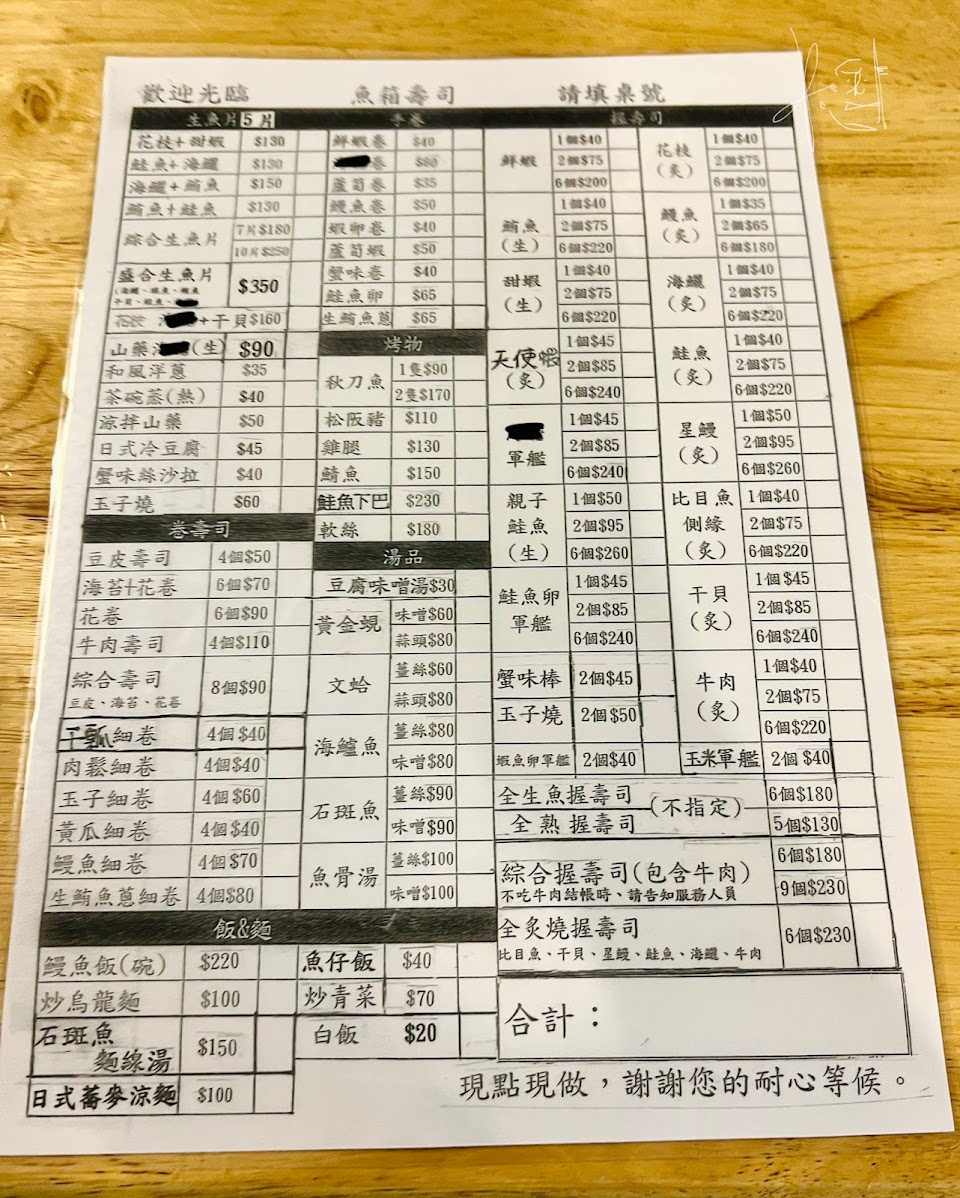 歡迎光臨 魚箱壽司 請填桌號
生魚片5片
花枝+甜蝦 $130
鮭魚+海鱺 $130
海鱺+鮪魚 $150
鮪魚+鮭魚 $130
綜合生魚片 7片$180
10片$250
盛合生魚片 $350
花枝 +干貝$160
山藥 (生) $90
和風洋蔥 $35
茶碗蒸(熱) $40
涼拌山藥 $50
日式冷豆腐 $45
蟹味絲沙拉 $40
玉子燒 $60
卷壽司
豆皮壽司 4個$50
海苔+花卷 6個$70
花卷 6個$90
牛肉壽司 4個$110
綜合壽司 8個$90
豆皮、海苔、花卷
干瓢細卷 4個$40
肉鬆細卷 4個$40
玉子細卷 4個$60
黃瓜細卷 4個$40
鰻魚細卷 4個$70
生鮪魚蔥細卷 4個$80
手卷
鮮蝦卷 $40
卷 $80
蘆筍卷 $35
鰻魚卷 $50
蝦卵卷 $40
蘆筍蝦 $50
蟹味卷 $40
鮭魚卵 $65
生鮪魚蔥 $65
烤物
秋刀魚 1隻$90
2隻$170
松阪豬 $110
雞腿 $130
鯖魚 $150
鮭魚下巴 $230
軟絲 $180
湯品
豆腐味噌湯$30
黃金蜆 味噌$60
蒜頭$80
文蛤 薑絲$60
蒜頭$80
海鱸魚 薑絲$80
味噌$80
石斑魚 薑絲$90
味噌$90
魚骨湯 薑絲$100
味噌$100
握壽司
鮮蝦 1個$40
2個$75
6個$200
鮪魚(生) 1個$40
2個$75
6個$220
甜蝦(生) 1個$40
2個$75
6個$220
天使蝦(炙) 1個$45
2個$85
6個$240
軍艦 1個$45
2個$85
6個$240
親子鮭魚(生) 1個$50
2個$95
6個$260
鮭魚卵軍艦 1個$45
2個$85
6個$240
蟹味棒 2個$45
玉子燒 2個$50
蝦魚卵軍艦 2個$40
花枝(炙) 1個$40
2個$75
6個$200
鰻魚(炙) 1個$35
2個$65
6個$180
海鱺(炙) 1個$40
2個$75
6個$220
鮭魚(炙) 1個$40
2個$75
6個$220
星鰻(炙) 1個$50
2個$95
6個$260
比目魚側緣(炙) 1個$40
2個$75
6個$220
干貝(炙) 1個$45
2個$85
6個$240
牛肉(炙) 1個$40
2個$75
6個$220
玉米軍艦 2個$40
全生魚握壽司 (不指定) 6個$180
全熟握壽司 5個$130
綜合握壽司(包含牛肉) 6個$180
不吃牛肉結帳時、請告知服務人員 9個$230
全炙燒握壽司 6個$230
比目魚、干貝、星鰻、鮭魚、海鱺、牛肉
飯&麵
鰻魚飯(碗) $220
炒烏龍麵 $100
石斑魚
麵線湯 $150
日式蕎麥涼麵 $100
魚仔飯 $40
炒青菜 $70
白飯 $20
合計：
現點現做，謝謝您的耐心等候。